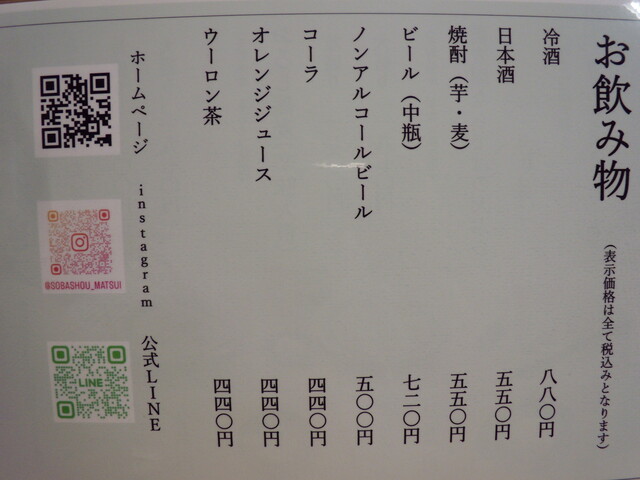 お飲み物
(表示価格は全て税込みとなります)
冷酒 八八〇円
日本酒 五五〇円
焼酎(芋・麦) 五五〇円
ビール(中瓶) 七二〇円
ノンアルコールビール 五〇〇円
コーラ 四四〇円
オレンジジュース 四四〇円
ウーロン茶 四四〇円
ホームページ
instagram
公式LINE
@SOBASHOU_MATSUI
LINE